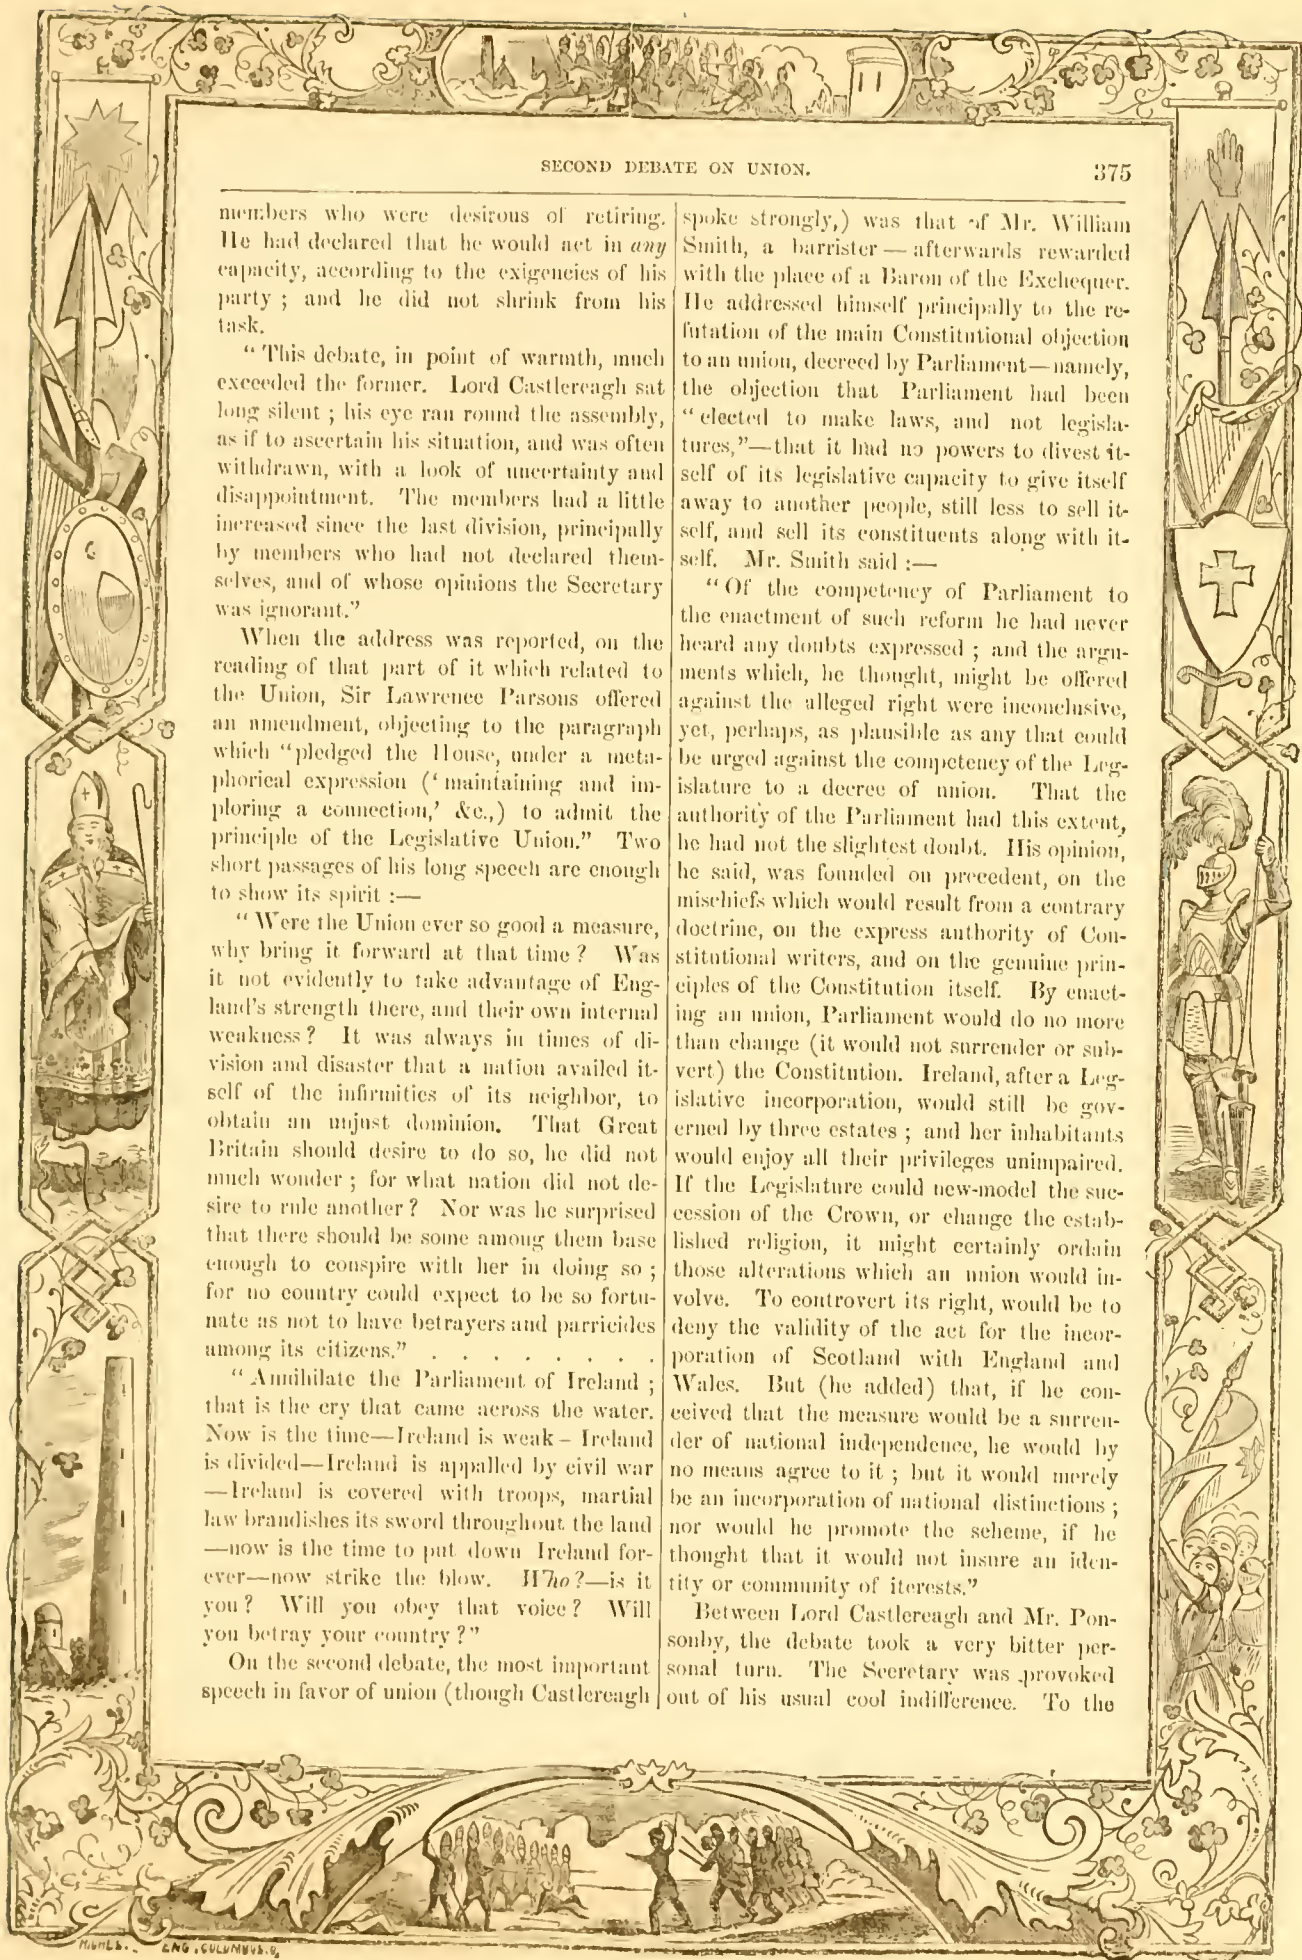 SECOND DEBATE ON UNION.
375
members who were desirous of retiring.
He had declared that he would act in any
capacity, according to the exigencies of his
party ; and he did not shrink from his
task.
“ This debate, in point of warmth, much
exceeded the former. Lord Castlereagh sat
long silent ; his eye ran round the assembly,
as if to ascertain his situation, and was often
withdrawn, with a look of uncertainty and
disappointment. The members had a little
increased since the last division, principally
by members who had not declared them-
selves, and of whose opinions the Secretary
was ignorant.”
When the address was reported, on the
reading of that part of it which related to
the Union, Sir Lawrence Parsons offered
an amendment, objecting to the paragraph
which “pledged the House, under a meta-
phorical expression (‘ maintaining and im-
ploring a connection,’ &c.,) to admit the
principle of the Legislative Union.” Two
short passages of his long speech are enough
to show its spirit :—
“ Were the Union ever so good a measure,
why bring it forward at that time ? Was
it not evidently to take advantage of Eng-
land’s strength there, and their own internal
weakness ? It was always in times of di-
vision and disaster that a nation availed it-
self of the infirmities of its neighbor, to
obtain an unjust dominion. That Great
Britain should desire to do so, he did not
much wonder ; for what nation did not de-
sire to rule another ? Nor was he surprised
that there should be some among them base
enough to conspire with her in doing so ;
for no country could expect to be so fortu-
nate as not to have betrayers and parricides
among its citizens.” . . . . . . . .
“ Annihilate the Parliament of Ireland ;
that is the cry that came across the water.
Now is the time—Ireland is weak – Ireland
is divided—Ireland is appalled by civil war
—Ireland is covered with troops, martial
law brandishes its sword throughout the land
—now is the time to put down Ireland for-
ever—now strike the blow. Who?—is it
you ? Will you obey that voice ? Will
you betray your country ?”
On the second debate, the most important
speech in favor of union (though Castlereagh
spoke strongly,) was that of Mr. William
Smith, a barrister — afterwards rewarded
with the place of a Baron of the Exchequer.
He addressed himself principally to the re-
futation of the main Constitutional objection
to an union, decreed by Parliament—namely,
the objection that Parliament had been
“ elected to make laws, and not legisla-
tures,”—that it had no powers to divest it-
self of its legislative capacity to give itself
away to another people, still less to sell it-
self, and sell its constituents along with it-
self. Mr. Smith said :—
“ Of the competency of Parliament to
the enactment of such reform he had never
heard any doubts expressed ; and the argu-
ments which, he thought, might be offered
against the alleged right were inconclusive,
yet, perhaps, as plausible as any that could
be urged against the competency of the Leg-
islature to a decree of union. That the
authority of the Parliament had this extent,
he had not the slightest doubt. His opinion,
he said, was founded on precedent, on the
mischiefs which would result from a contrary
doctrine, on the express authority of Con-
stitutional writers, and on the genuine prin-
ciples of the Constitution itself. By enact-
ing an union, Parliament would do no more
than change (it would not surrender or sub-
vert) the Constitution. Ireland, after a Leg-
islative incorporation, would still be gov-
erned by three estates ; and her inhabitants
would enjoy all their privileges unimpaired.
If the Legislature could new-model the suc-
cession of the Crown, or change the estab-
lished religion, it might certainly ordain
those alterations which an union would in-
volve. To controvert its right, would be to
deny the validity of the act for the incor-
poration of Scotland with England and
Wales. But (he added) that, if he con-
ceived that the measure would be a surren-
der of national independence, he would by
no means agree to it ; but it would merely
be an incorporation of national distinctions ;
nor would he promote the scheme, if he
thought that it would not insure an iden-
tity or community of iterests.”
Between Lord Castlereagh and Mr. Pon-
sonby, the debate took a very bitter per-
sonal turn. The Secretary was provoked
out of his usual cool indifference. To the
ENG. COLUMBUS. O.